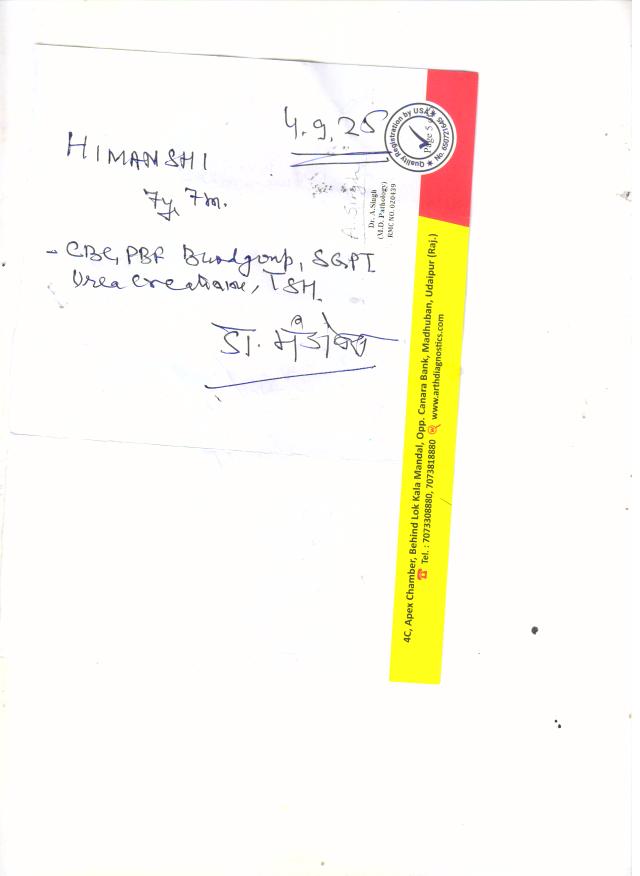 4.9.25
HIMANSHI
7y, 7m.
- CBC, PBF Bloodgoup, SGPT
Urea Creatinine, TSH.
डा.
A. Singh
Dr. A.Singh
(M.D. Pathology)
RMC NO. 020439
Quality Registration by USA
Page 5
4C, Apex Chamber, Behind Lok Kala Mandal, Opp. Canara Bank, Madhuban, Udaipur (Raj.)
Tel. : 7073308880, 7073818880 www.arthdiagnostics.com